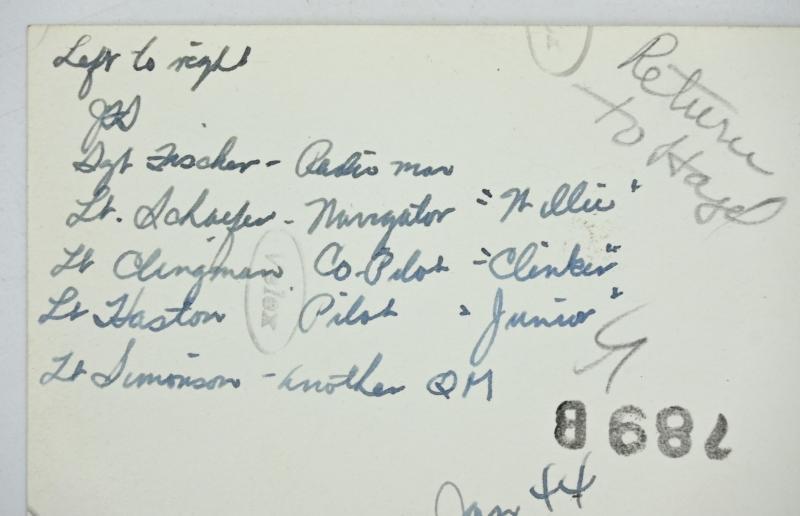 Left to right
JPS
Sgt Fischer - Radio man
Lt. Schaefer - Navigator "Willie"
Lt Clingman Co-Pilot - "Clinker"
Lt Haston Pilot "Junior"
Lt Simonson - another QM
Return
to Hazel
Velox
789B
Jan 44